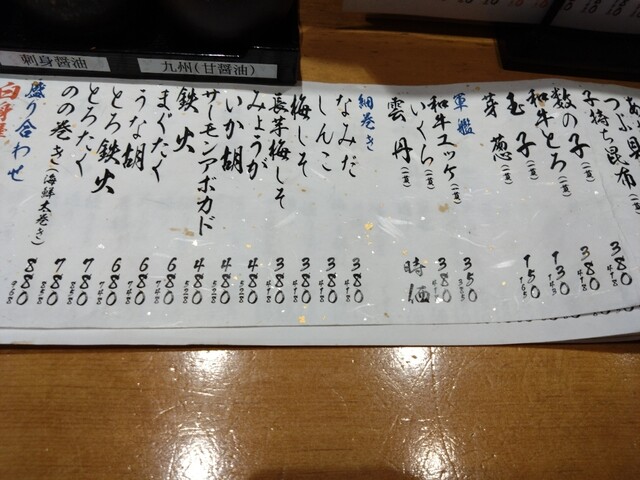 刺身醤油
九州(甘醤油)
つぶ貝
子持ち昆布(一貫) 380 418
数の子(一貫)
和牛とろ(一貫)
玉子(一貫)
芽葱(一貫) 150 165
軍艦
和牛ユッケ(一貫) 350 385
いくら(一貫) 380 418
雲丹(一貫) 時価
細巻き
なみだ 380 418
しんこ 380 418
梅しそ 380 418
長芋梅しそ 380 418
みょうが 480 528
いか胡 480 528
サーモンアボカド 480 528
鉄火 680 748
まぐたく 680 748
うな胡 680 748
とろ鉄火 780 858
とろたく 780 858
のの巻き(海鮮太巻き) 880 968
盛り合わせ
白身